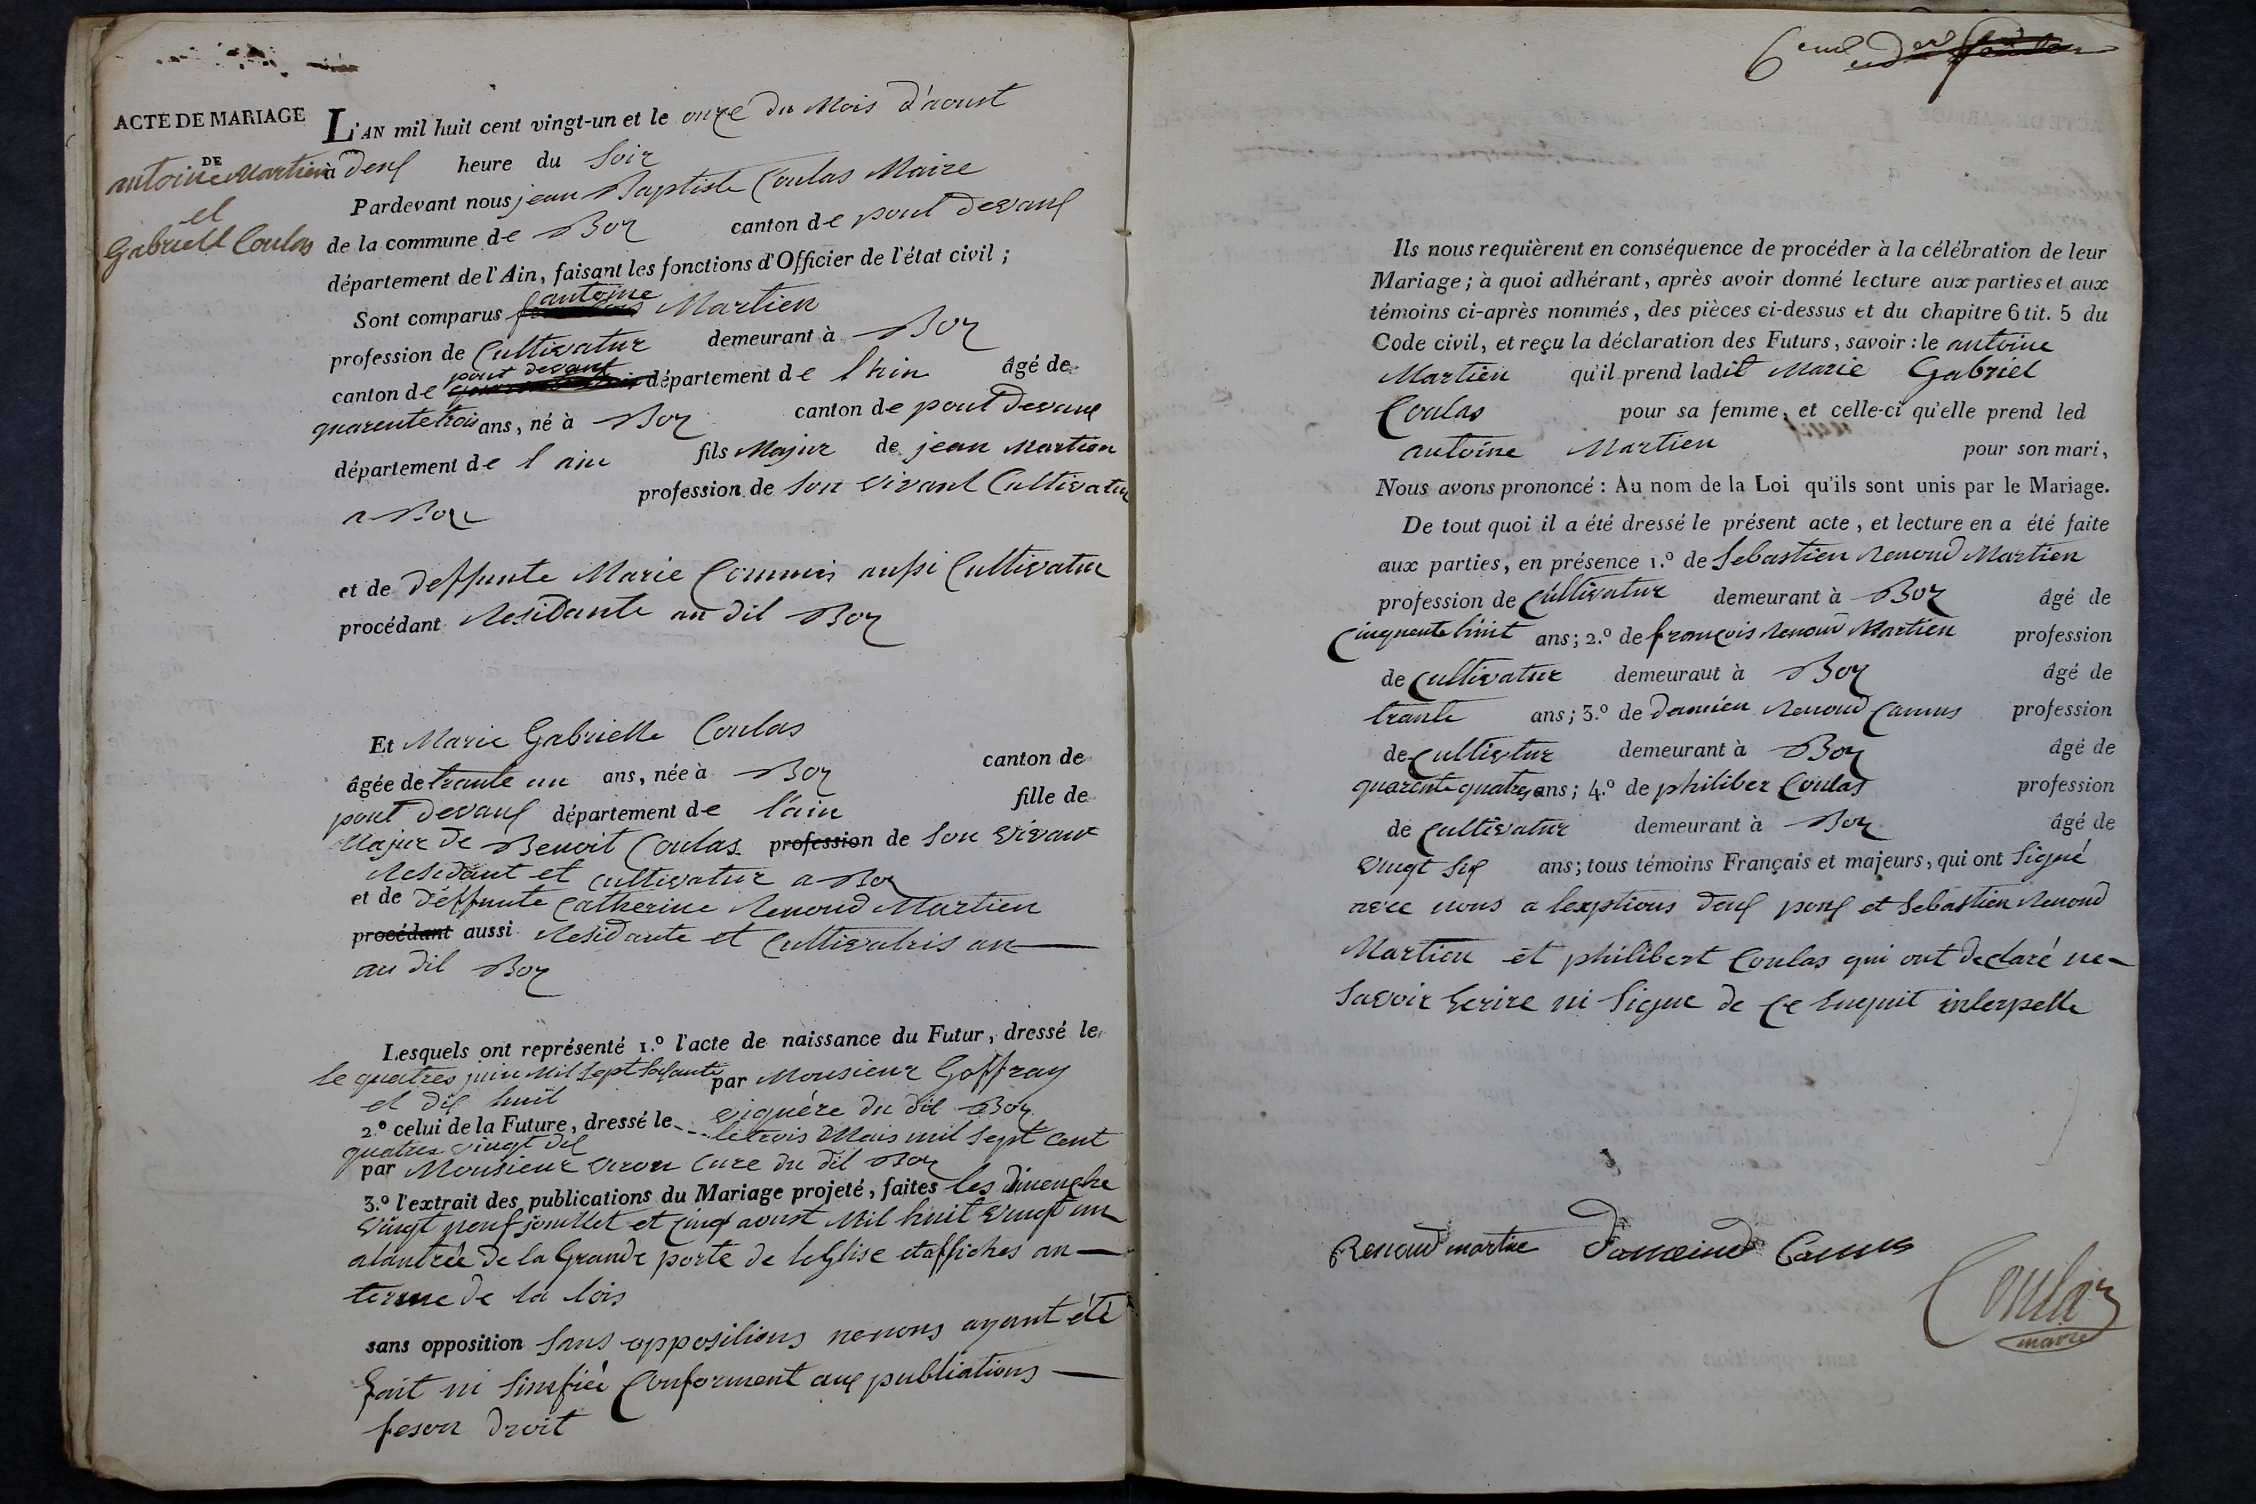 ACTE DE MARIAGE
DE
antoine Martien
et
Gabriell Coulas
L'AN mil huit cent vingt-un et le onze du Mois d'aoust
à deux heure du soir
Pardevant nous jean Baptiste Coulas Maire
de la commune de Boz canton de pont devaux
département de l'Ain, faisant les fonctions d'Officier de l'état civil ;
Sont comparus antoine Martien
profession de Cultivatur demeurant à Boz
canton de pont devaux département de l'hin âgé de
quarente trois ans, né à Boz canton de pont devaux
département de l ain fils Majur de jean Martien
profession de son vivant Cultivatur
a Boz
et de deffunte Marie Commis aussi Cultivatur
procédant Residante au dit Boz
Et Marie Gabrielle Coulas
âgée de trante un ans, née à Boz canton de
pont devaux département de l'ain fille de
Majur de Benoit Coulas profession de son vivant
Residant et cultivatur a Boz
et de déffunte Catherine Renoud Martien
procédant aussi Residante et Cultivatris au
au dit Boz
Lesquels ont représenté 1.º l'acte de naissance du Futur, dressé le
le quatres juin Mil sept soixante par Monsieur Goffray
et dix huit viquére du dit Boz
2.º celui de la Future, dressé le le trois Mais mil sept cent
quatres vingt dix
par Monsieur Curé du dit Boz
3.º l'extrait des publications du Mariage projeté, faites les dimenche
vingt neuf jouillet et cinq aoust Mil huit vingt un
alantrée de la Grande porte de leglise et affiches au
terme de la lois
sans opposition sans oppositions ne nous ayant été
fait ni sinifiée Conforment aux publiations
feson droit
6eme
Ils nous requièrent en conséquence de procéder à la célébration de leur
Mariage ; à quoi adhérant, après avoir donné lecture aux parties et aux
témoins ci-après nommés, des pièces ci-dessus et du chapitre 6 tit. 5 du
Code civil, et reçu la déclaration des Futurs, savoir : le antoine
Martien qu'il prend ladit Marie Gabriel
Coulas pour sa femme, et celle-ci qu'elle prend led
antoine Martien pour son mari,
Nous avons prononcé : Au nom de la Loi qu'ils sont unis par le Mariage.
De tout quoi il a été dressé le présent acte, et lecture en a été faite
aux parties, en présence 1.º de Sebastien Renoud Martien
profession de cultivatur demeurant à Boz âgé de
cinquente huit ans ; 2.º de françois Renoud Martien profession
de cultivatur demeuraut à Boz âgé de
trante ans ; 3.º de damien Renoud Camus profession
de cultivtur demeurant à Boz âgé de
quarente quatres ans ; 4.º de philiber Coulas profession
de cultivatur demeurant à Boz âgé de
vingt six ans ; tous témoins Français et majeurs, qui ont signé
avec nous a lexptions deux et Sebastien Renoud
Martien et philibert Coulas qui ont declaré ne
savoir Ecrire ni signe de ce Enquit interpelle
Renoud martine Camus
Coulas
maire